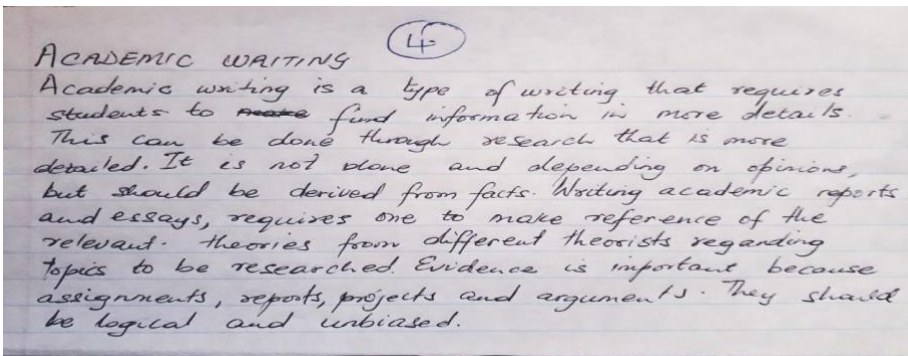 4
ACADEMIC WRITING
Academic writing is a type of writing that requires
students to find information in more details.
This can be done through research that is more
detailed. It is not done and depending on opinions,
but should be derived from facts. Writing academic reports
and essays, requires one to make reference of the
relevant. theories from different theorists regarding
topics to be researched. Evidence is important because
assignments, reports, projects and arguments. They should
be logical and unbiased.